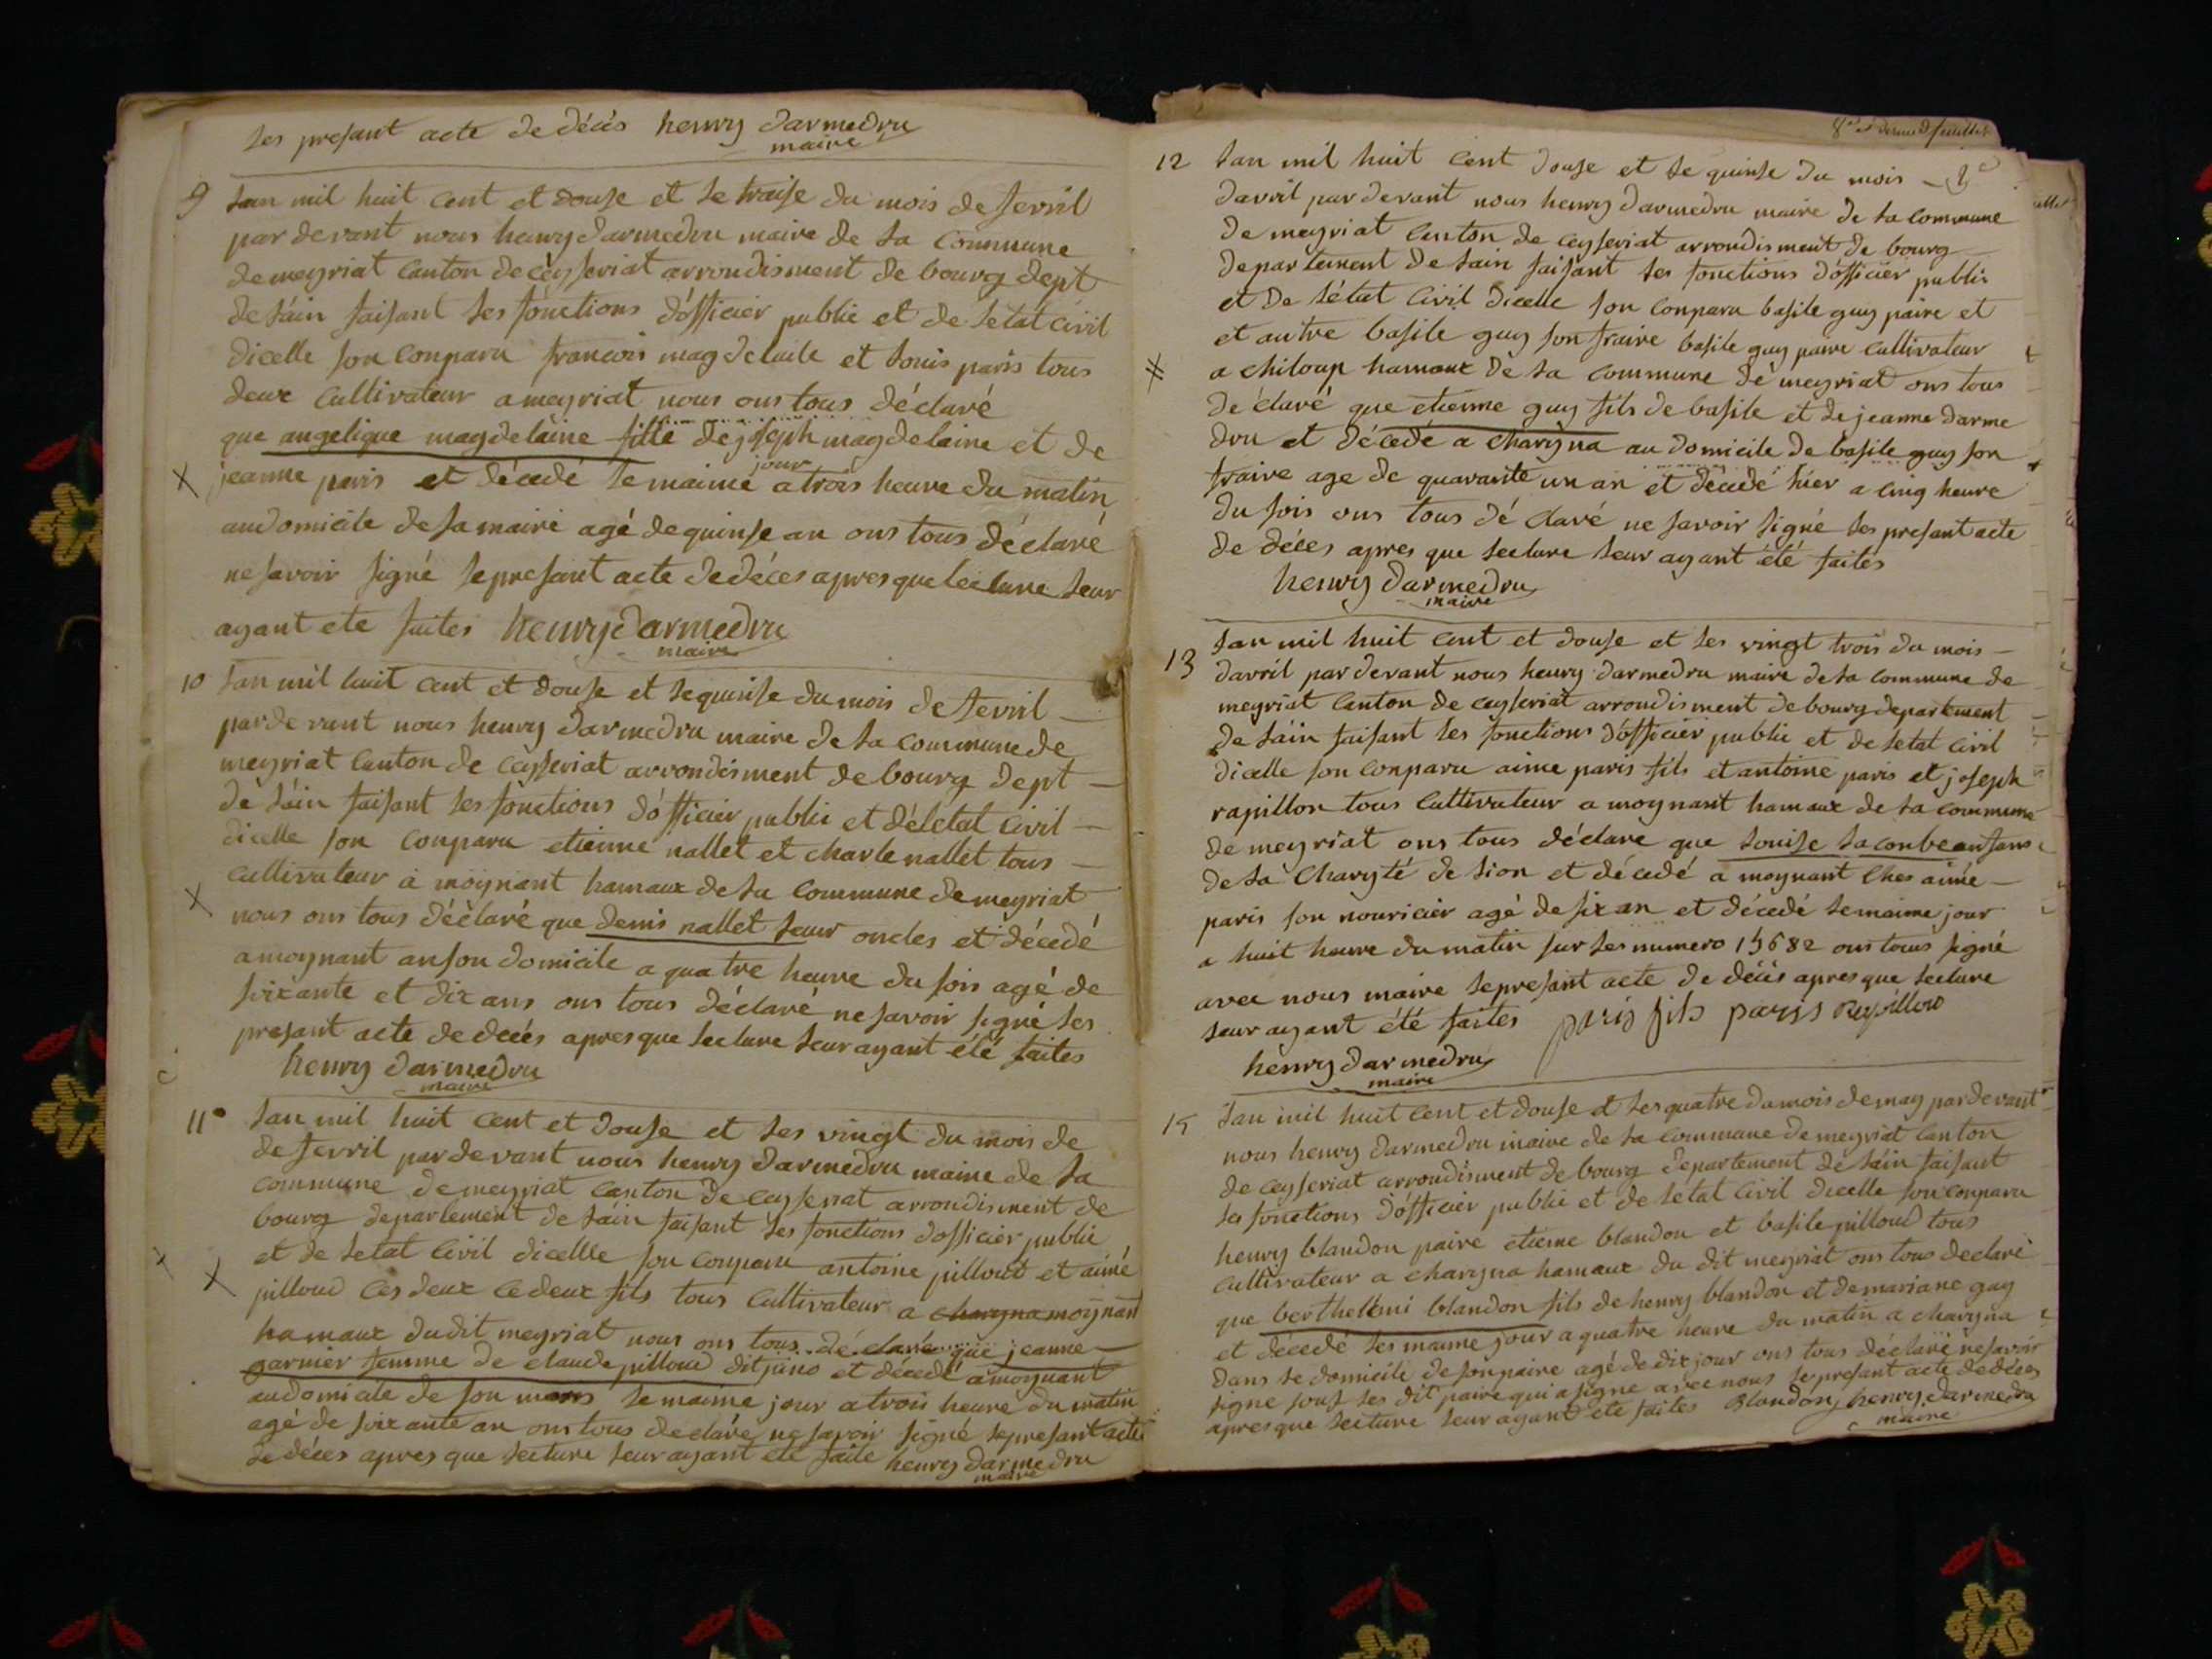 les presant acte de décés henry darmedru
maire
9 lan mil huit cent et douse et le traise du mois de fevril
par devant nous henry darmedru maire de la commune
de meyriat canton de ceyseriat arrondisment de bourg dept
de láin faisant les fonctions dófficier public et de letat civil
dicelle son conparu francois magdelaile et louis paris tous
deux cultivateur a meyriat nous ons tous déclaré
que angelique magdelaine fille de joseph magdelaine et de
jeanne paris et décedé le maime jour a trois heure du matin
au domicile de sa maire agé de quinse an ons tous déclaré
ne savoir signé le presant acte de déces apres que lecture leur
ayant ete faites henry darmedru
maire
10 lan mil huit cent et douse et le quinse du mois de fevril
par devant nous henry darmedru maire de la commune de
meyriat canton de ceyseriat arrondisment de bourg dept
de láin faisant les fonctions dófficier public et de letat civil
dicelle son conparu etienne nallet et charle nallet tous
cultivateur a moynant hamaux de la commune de meyriat
nous ons tous déclaré que denis nallet leur oncles et décedé
a moynant an son domicile a quatre heure du soir agé de
soixante et dix ans ons tous déclaré ne savoir signé les
presant acte de decés apres que lecture leur ayant été faites
henry darmedru
maire
11 lan mil huit cent et douse et les vingt du mois de
de fevril par devant nous henry darmedru maire de la
commune de meyriat canton de ceyseriat arrondisment de
bourg departement de láin faisant les fonctions dofficier public
et de letat civil dicellle son conparu antoine pilloud et aimé
pilloud les deux ledeux fils tous cultivateur a charygna moynant
hamaux dudit meyriat nous ons tous déclaré que jeanne
garnier femme de claude pilloud dit jano et décedé a moynant
au domicile de son maris le maime jour a trois heure du matin
agé de soixante an ons tous declaré ne savoir signé le presant acte
de déces apres que lecture leur ayant ete faite henry darmedru
maire
8e et dernier feuillet
12 lan mil huit cent douse et le quinse du mois
davril par devant nous henry darmedru maire de la commune
de meyriat canton de ceyseriat arrondisment de bourg
departement de lain faisant les fonctions dófficier public
et de létat civil dicelle son conparu basile guy paire et
et autre basile guy son fraire basile guy paire cultivateur
a chiloup hamaux de la commune de meyriat ons tous
déclaré que etienne guy fils de basile et de jeanne darme
dru et décedé a charygna au domicile de basile guy son
fraire age de quarante un an et décedé hier a cinq heure
du soir ons tous déclaré ne savoir signé les presant acte
de déces apres que lecture leur ayant été faites
henry darmedru
maire
13 lan mil huit cent et douse et les vingt trois du mois
davril par devant nous henry darmedru maire de la commune de
meyriat canton de ceyseriat arrondisment de bourg departement
de láin faisant les fonctions dófficier public et de letat civil
dicelle son conparu aime paris fils et antoine paris et joseph
rapillon tous cultivateur a moynant hamaux de la commune
de meyriat ons tous déclare que louise laconbe anfans
de la charyté de lion et décedé a moynant ches aimé
paris son nouricier agé de six an et décedé le maime jour
a huit heure du matin sur les numero 15682 ons tous signé
avec nous maire le presant acte de décés apres que lecture
leur ayant été faites paris fils pariss Rapillon
henry darmedru
maire
15 lan mil huit cent et douse et les quatre du mois de may par devant
nous henry darmedru maire de la commune de meyriat canton
de ceyseriat arrondisment de bourg departement de láin faisant
les fonctions dófficier public et de letat civil dicelle son conparu
henry blandon paire etienne blandon et basile pilloud tous
cultivateur a charygna hamaux du dit meyriat ons tous declaré
que berthelemi blandon fils de henry blandon et de mariane guy
et décedé les maime jour a quatre heure du matin a charygna
dans le domicile de son paire agé de dix jour ons tous déclaré ne savoir
signe souf les dit paire qui a signe avec nous le presant acte de déces
apres que lecture leur ayant ete faites Blandon henry darmedru
maire